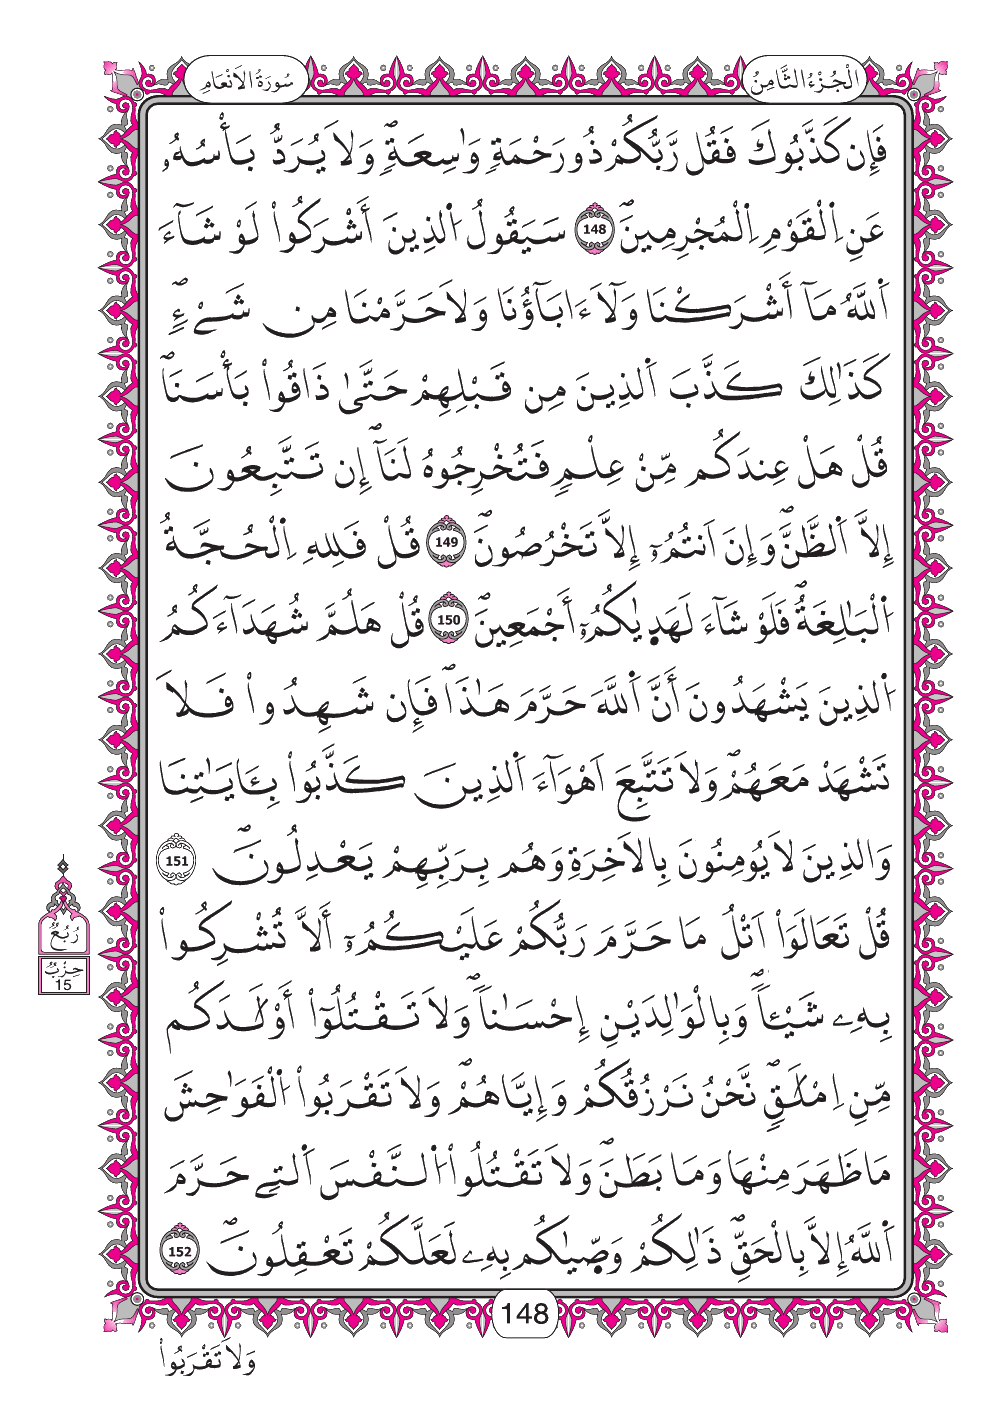 الْجُزْءُ الثَّامِنُ
سُورَةُ الاَنْعَامِ
فَإِن كَذَّبُوكَ فَقُل رَّبُّكُمْ ذُو رَحْمَةٖ وَٰسِعَةٖۖ وَلَا يُرَدُّ بَأْسُهُۥ
عَنِ اِ۬لْقَوْمِ اِ۬لْمُجْرِمِينَۖ 148 سَيَقُولُ اُ۬لذِينَ أَشْرَكُواْ لَوْ شَآءَ
اَ۬للَّهُ مَآ أَشْرَكْنَا وَلَآ ءَابَآؤُنَا وَلَا حَرَّمْنَا مِن شَےْءٖۖ
كَذَٰلِكَ كَذَّبَ اَ۬لذِينَ مِن قَبْلِهِمْ حَتَّىٰ ذَاقُواْ بَأْسَنَاۖ
قُلْ هَلْ عِندَكُم مِّنْ عِلْمٖ فَتُخْرِجُوهُ لَنَآۖ إِن تَتَّبِعُونَ
إِلَّا اَ۬لظَّنَّۖ وَإِنَ اَنتُمُۥٓ إِلَّا تَخْرُصُونَۖ 149 قُلْ فَلِلهِ اِ۬لْحُجَّةُ
اُ۬لْبَٰلِغَةُۖ فَلَوْ شَآءَ لَهَد۪يٰكُمُۥٓ أَجْمَعِينَۖ 150 قُلْ هَلُمَّ شُهَدَآءَكُمُ
اُ۬لذِينَ يَشْهَدُونَ أَنَّ اَ۬للَّهَ حَرَّمَ هَٰذَاۖ فَإِن شَهِدُواْ فَلَا
تَشْهَدْ مَعَهُمْۖ وَلَا تَتَّبِعَ اَهْوَآءَ اَ۬لذِينَ كَذَّبُواْ بِـَٔايَٰتِنَا
وَالذِينَ لَا يُومِنُونَ بِالَاخِرَةِ وَهُم بِرَبِّهِمْ يَعْدِلُونَۖ 151
قُلْ تَعَالَوَاْ اَتْلُ مَا حَرَّمَ رَبُّكُمْ عَلَيْكُمُۥٓ أَلَّا تُشْرِكُواْ
بِهِۦ شَيْـٔاٗۖ وَبِالْوَٰلِدَيْنِ إِحْسَٰناٗۖ وَلَا تَقْتُلُوٓاْ أَوْلَٰدَكُم
مِّنِ اِمْلَٰقٖۖ نَّحْنُ نَرْزُقُكُمْ وَإِيَّاهُمْۖ وَلَا تَقْرَبُواْ اُ۬لْفَوَٰحِشَ
مَا ظَهَرَ مِنْهَا وَمَا بَطَنَۖ وَلَا تَقْتُلُواْ اُ۬لنَّفْسَ اَ۬لتِے حَرَّمَ
اَ۬للَّهُ إِلَّا بِالْحَقِّۖ ذَٰلِكُمْ وَصّ۪يٰكُم بِهِۦ لَعَلَّكُمْ تَعْقِلُونَۖ 152
رُبُعُ
حِزْبُ
15
148
وَلَا تَقْرَبُواْ